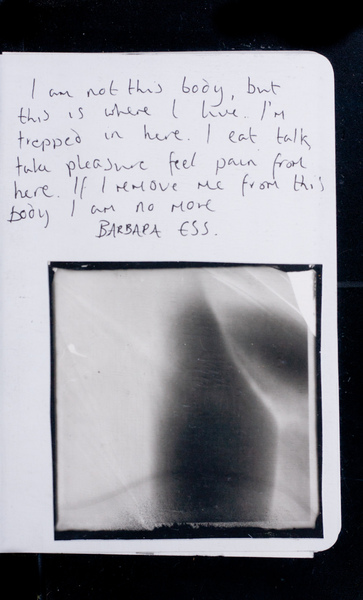 I am not this body, but
this is where I live. I'm
trapped in here. I eat talk
take pleasure feel pain from
here. If I remove me from this
body I am no more
BARBARA ESS.